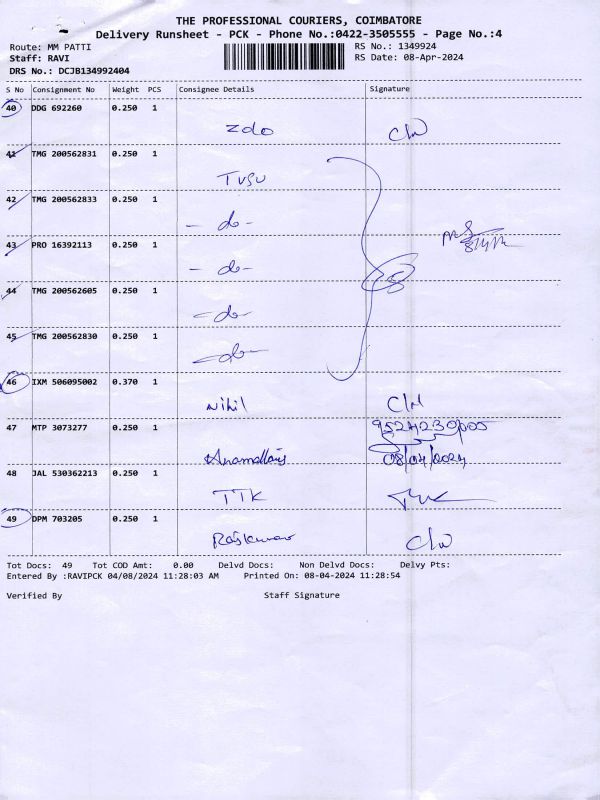 THE PROFESSIONAL COURIERS, COIMBATORE
Delivery Runsheet - PCK - Phone No.:0422-3505555 - Page No.:4
Route: MM PATTI RS No.: 1349924
Staff: RAVI RS Date: 08-Apr-2024
DRS No.: DCJB134992404
S No Consignment No Weight PCS Consignee Details Signature
40 DDG 692260 0.250 1
Zdo C/N
41 TMG 200562831 0.250 1
TVSU
42 TMG 200562833 0.250 1
- do -
43 PRO 16392113 0.250 1
- do -
44 TMG 200562605 0.250 1
- do -
45 TMG 200562830 0.250 1
- do -
46 IXM 506095002 0.370 1
Nihil C/N
47 MTP 3073277 0.250 1
08/04/2024
48 JAL 530362213 0.250 1
TTK
49 DPM 703205 0.250 1
Rajkumar C/N
Tot Docs: 49 Tot COD Amt: 0.00 Delvd Docs: Non Delvd Docs: Delvy Pts:
Entered By :RAVIPCK 04/08/2024 11:28:03 AM Printed On: 08-04-2024 11:28:54
Verified By Staff Signature